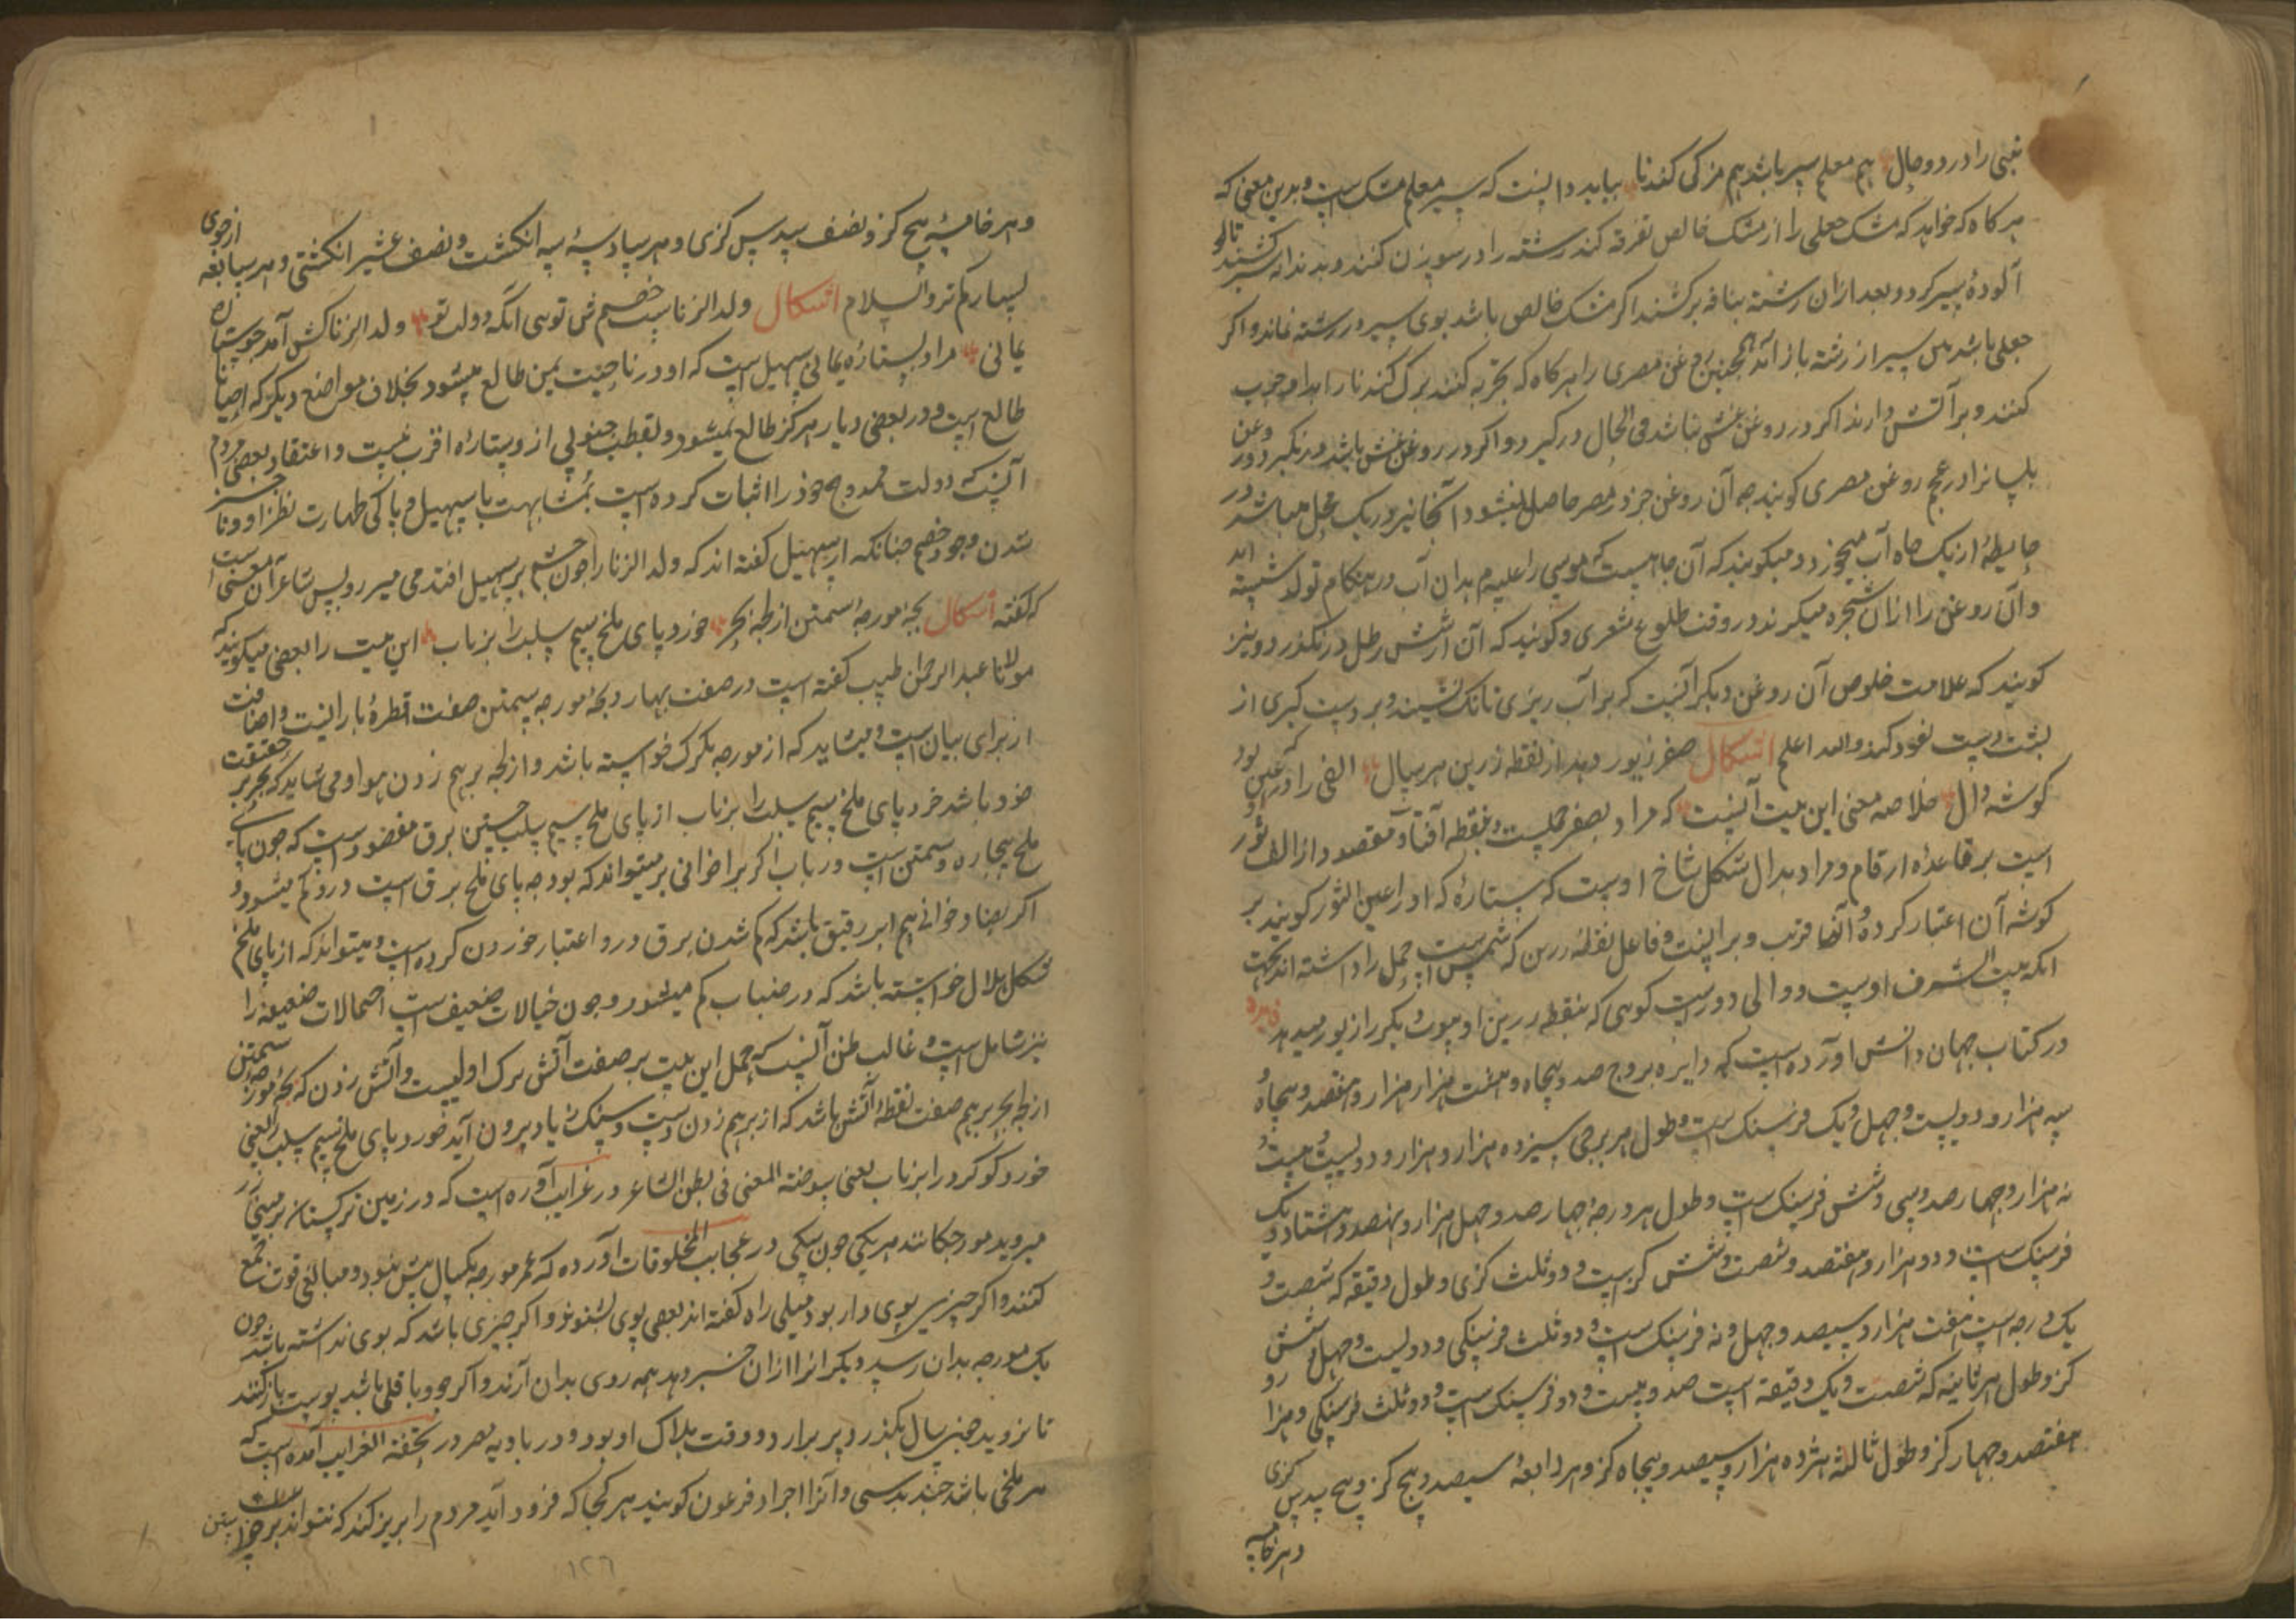 نبی را در دو حال هم معلم سیر باشد هم مزکی کندنا بباید دانست که سیر معلم مشک است و بدین معنی که
هر کاه که خواهد که مشک جعلی را از مشک خالص تفرقه کند رشته را در سوزن کنند و بدندانه سیر کشند تا او
آلودهٔ سیر کردد و بعد ازان رشته بنافه برکشند اکر مشک خالص باشد بوی سیر در رشته نماند و اکر
جعلی باشد بس سیر از رشته باز آید همچنین روغن مصری را هر کاه که تجربه کنند برک کندنا را بدان چرب
کنند و بر آتش دارند اکر در روغن غش نباشد فی الحال در کیرد و اکر در روغن غش باشد در نکیرد و روغن
بلسانرا در عجم روغن مصری کویند چه آن روغن جز در مصر حاصل نمیشود و آنجا نیز در یک محل میباشد در
حایطهٔ از یک چاه آب میخورد و میکویند که آن چاهیست که موسی را علیه م بدان آب در هنکام تولد شسته اند
و آن روغن را ازان شجره میکیرند در وقت طلوع شعری و کویند که آن از شش رطل در نکذرد و نیز
کویند که علامت خلوص آن روغن دیکر آنست که بر آب ریزی تا تک نشیند و بر دست کیری از
بشت دست نفوذ کند و الله اعلم اشکال صفر زیور دهد از نقطه زرین هر سال الفی را که در عین بود
کوشه دال خلاصه معنی این بیت آنست که مراد بصفر حملست و بنقطه آفتاب و مقصود از الف ثور
است بر قاعده ارقام و مراد بدال شکل شاخ اوست که ستاره که او را عین الثور کویند بر
کوشه آن اعتبار کرده و آنها قریب و برابرند و فاعل نقطه زرین که شمس است حمل را داشته اند بجهت
انکه بیت الشرف اوست و والی دورست کوهی که بنقطه زرین او موت بکر را زیور میدهد
در کتاب جهان دانش آورده است که دایره بروج صد و پنجاه و هشت هزار هزار و هفتصد و پنجاه و
سه هزار و دویست و چهل و یک فرسنک است و طول هر برجی سیزده هزار هزار و دویست و بیست و
نه هزار و چهارصد و سی و شش فرسنک است و طول هر درجه چهارصد و چهل هزار و نهصد و هشتاد و یک
فرسنک است و دو هزار و هفتصد و شصت و شش کز است و دو ثلث کزی و طول دقیقه که شصت و
یک درجه است هفت هزار و سیصد و چهل و نه فرسنک است و دو ثلث فرسنکی و دویست و چهل و شش
کز و طول هر ثانیه که شصت و یک دقیقه است صد و بیست و دو فرسنک است و دو ثلث فرسنکی و هزار و
هفتصد و چهار کز و طول ثالثه هژده هزار و سیصد و پنجاه کز و هر رابعهٔ سیصد و پنج کز و پنج سدس کزی
و هر خامسه
و هر خامسهٔ پنج کز و نصف سدس کزی و هر سادسهٔ سه انکشت و نصف عشیر انکشتی و هر سابعه از جوی
بسیار کمتر والسلام اشکال ولد الزناست خصم ش توهی انکه دولت تو ولد الزنا کش آمد چو ستاره
یمانی مراد بستاره یمانی سهیل است که او در ناحیت یمن طالع میشود بخلاف مواضع دیکر که احیانا
طالع است و در بعضی دیار هرکز طالع نمیشود و بقطب جنوبی ازو ستاره اقرب نیست و اعتقاد بعضی مردم
آنست که دولت ممدوح خود را اثبات کرده است بمشابهت با سهیل و پاکی طهارت نظر او و ناچیز
شدن وجود خصم چنانکه از سهیل کفته اند که ولد الزنا را چون چشم بر سهیل افتد می میرد و پس شاعر آن معنی است
که کفته اشکال بجهٔ مورچهٔ سمتن از لجه بحر خورد پای ملخ سیم سلب را بزناب این بیت را بعضی میکویند که
مولانا عبد الرحمن طبیب کفته است در صفت بهار و بجه مورچه سمتن صفت قطره بارانست و اضافت
از برای بیان است و میشاید که از مورچه تکرک خواسته باشد و از لجه بر هم زدن هوا و می شاید که بحر بر حقیقت
خود باشد خورد پای ملخ سیم سلب را بزناب از پای ملخ سیم سلب جستن برق مقصودست که چون پای
ملخ بیچاره و سمتن است و رباب اکر برا خوانی بر میتواند که بود چه پای ملخ برق است درو کم میشود و
اکر بضاد خوانی هم ابر رقیق باشد که کم شدن برق درو اعتبار خوردن کرده است و میتواند که از پای ملخ
شکل هلال خواسته باشد که در ضباب کم میشود و چون خیالات ضعیف است احتمالات ضعیفه را
نیز شامل است و غالب ظن آنست که حمل این بیت بر صفت آتش برک اولیست و آتش زدن که بجه مورچه سمتن
از لجه بحر بر هم صفت نقطه آتش باشد که از بر هم زدن دست و سنک زیاد بیرون آید خورد پای ملخ سیم سلب را یعنی
خورد کوکرد را بزناب یعنی بسوخته المعنی فی بطن الشاعر در غرایب آورده است که در زمین ترکستان بر
میروید مورچکانند هر یکی چون سکی در عجایب المخلوقات آورده که عمر مورچه یکسال بیش نبود و مبالغی قوت جمع
کنند و اکر چیزی بوی دار بود میلی راه کفته اند بعضی بوی بشنوند و اکر چیزی باشد که بوی نداشته باشد چون
یک مورچه بدان رسید دیکرانرا ازان خبر دهد همه روی بدان آرند و اکر جو و باقلی باشد پوست باز کنند
تا نروید چون سال بکذرد پر برآرد و وقت هلاک او بود و در بادیه بصره در تحفة الغرایب آمده است که
هر ملخی باشد چند بدستی و آنرا جراد فرعون کویند هر کجا که فرود آید مردم را بریز کند که نتوانند
۱۲٦